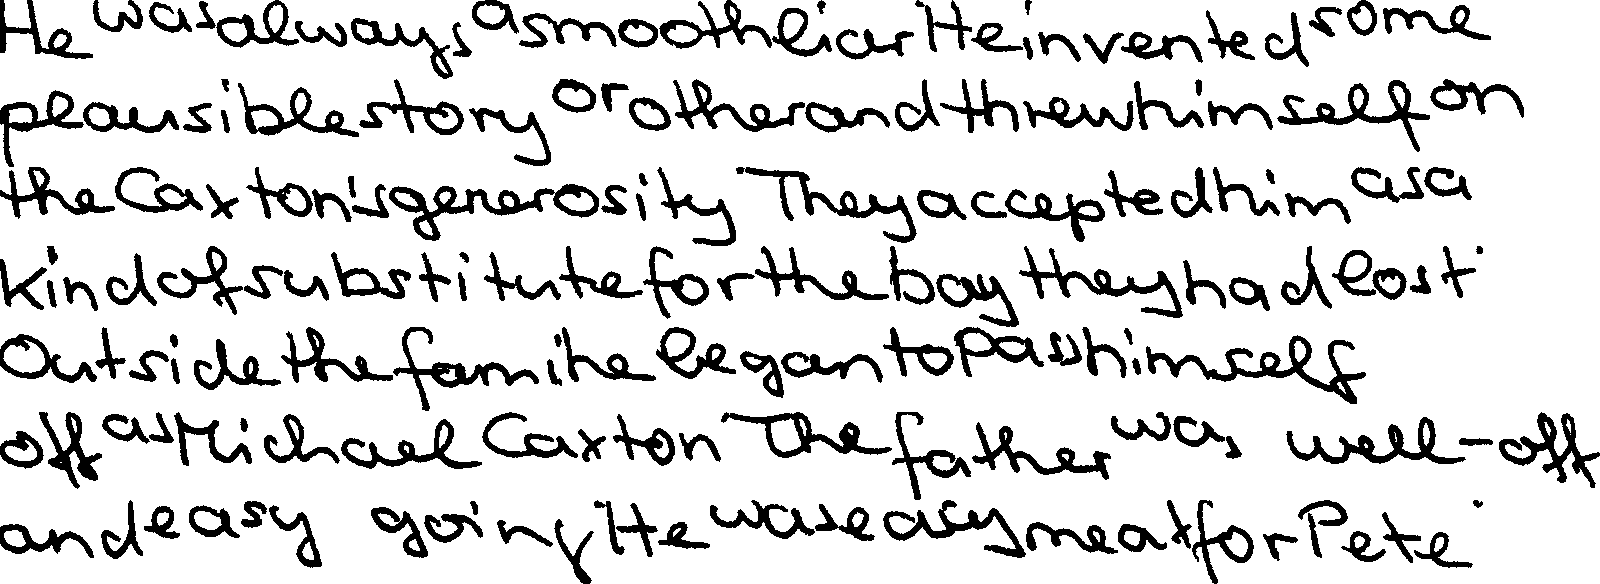 He was always a smooth liar. He invented some
plausible story or other and threw himself on
the Caxton's generosity. They accepted him as a
kind of substitute for the boy they had lost.
Outside the fam he began to pass himself
off as Michael Caxton. The father was well-off
and easy going. He was easy meat for Pete.